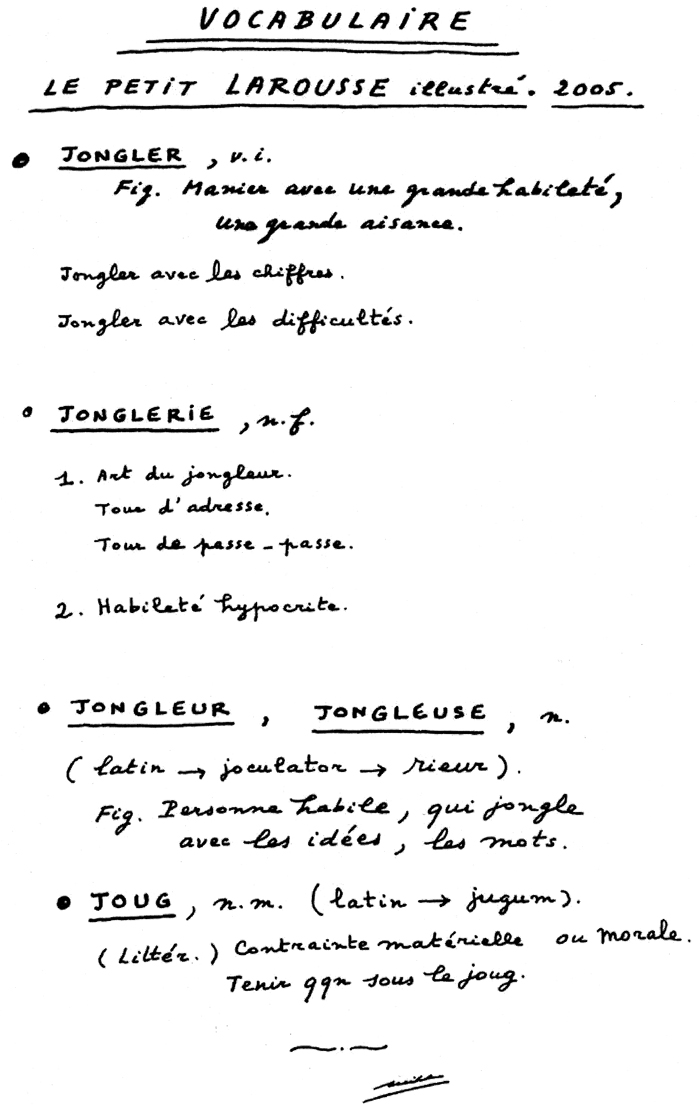 VOCABULAIRE
LE PETIT LAROUSSE illustré. 2005.
• JONGLER, v.i.
Fig. Manier avec une grande habileté,
une grande aisance.
Jongler avec les chiffres.
Jongler avec les difficultés.
• JONGLERIE, n.f.
1. Art du jongleur.
Tour d'adresse.
Tour de passe-passe.
2. Habileté hypocrite.
• JONGLEUR, JONGLEUSE, n.
(latin → joculator → rieur).
Fig. Personne habile, qui jongle
avec les idées, les mots.
• JOUG, n.m. (latin → jugum).
(Littér.) Contrainte matérielle ou morale.
Tenir qqn sous le joug.